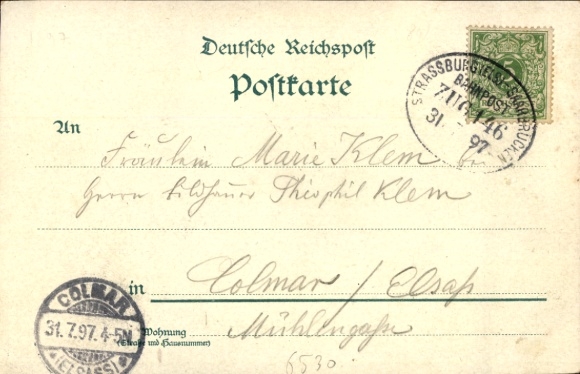 Deutsche Reichspost
Postkarte
STRASSBURG (ELS)-SAARBRÜCKEN
BAHNPOST
ZUG 146
31. 97
An
Fräulein Marie Klem bei
Herrn Bildhauer Théophil Klem
in Colmar / Elsaß
Wohnung
(Straße und Hausnummer)
Mühlengaße
COLMAR
31.7.97.4-5N.
(ELSASS)
6530.